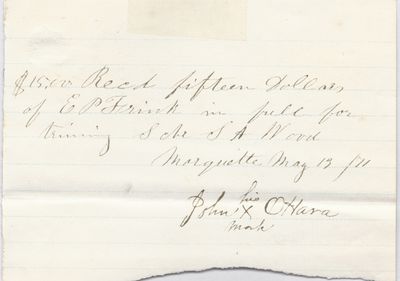 $15.00 Recd fifteen Dollars
of E P Frink in full for
triming Schr S A Wood
Marquette May 13 /71
his
John X OHara
mark